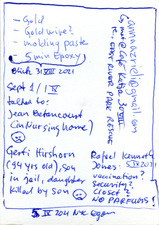 - Gold
- Gold wire?
- molding paste
5min Epoxy
31 VIII 2021
Sept 1 / 1 IX
talked to:
Jean Betancourt
(in Nursing home)
Gerti Hirshorn
(94 yrs old), son
in jail, daughter
killed by son
annaseriel@gmail.com
EAST RIVER PARK
Rafael Kennett
Jones: IX 2021
vaccination?
Security?
Closet?
NO PARFUMS!
IX 2021 NYC